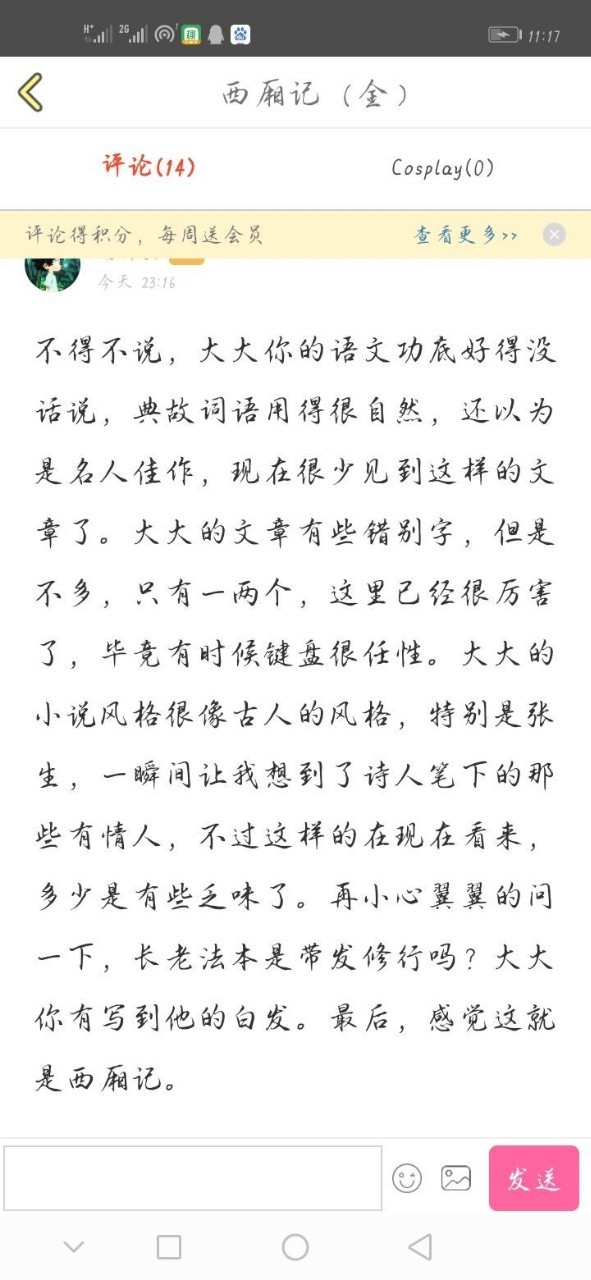 H+ 2G 11:17
西厢记（金）
评论(14) Cosplay(0)
评论得积分，每周送会员 查看更多>>
今天 23:16
不得不说，大大你的语文功底好得没
话说，典故词语用得很自然，还以为
是名人佳作，现在很少见到这样的文
章了。大大的文章有些错别字，但是
不多，只有一两个，这里已经很厉害
了，毕竟有时候键盘很任性。大大的
小说风格很像古人的风格，特别是张
生，一瞬间让我想到了诗人笔下的那
些有情人，不过这样的在现在看来，
多少是有些乏味了。再小心翼翼的问
一下，长老法本是带发修行吗？大大
你有写到他的白发。最后，感觉这就
是西厢记。
发送